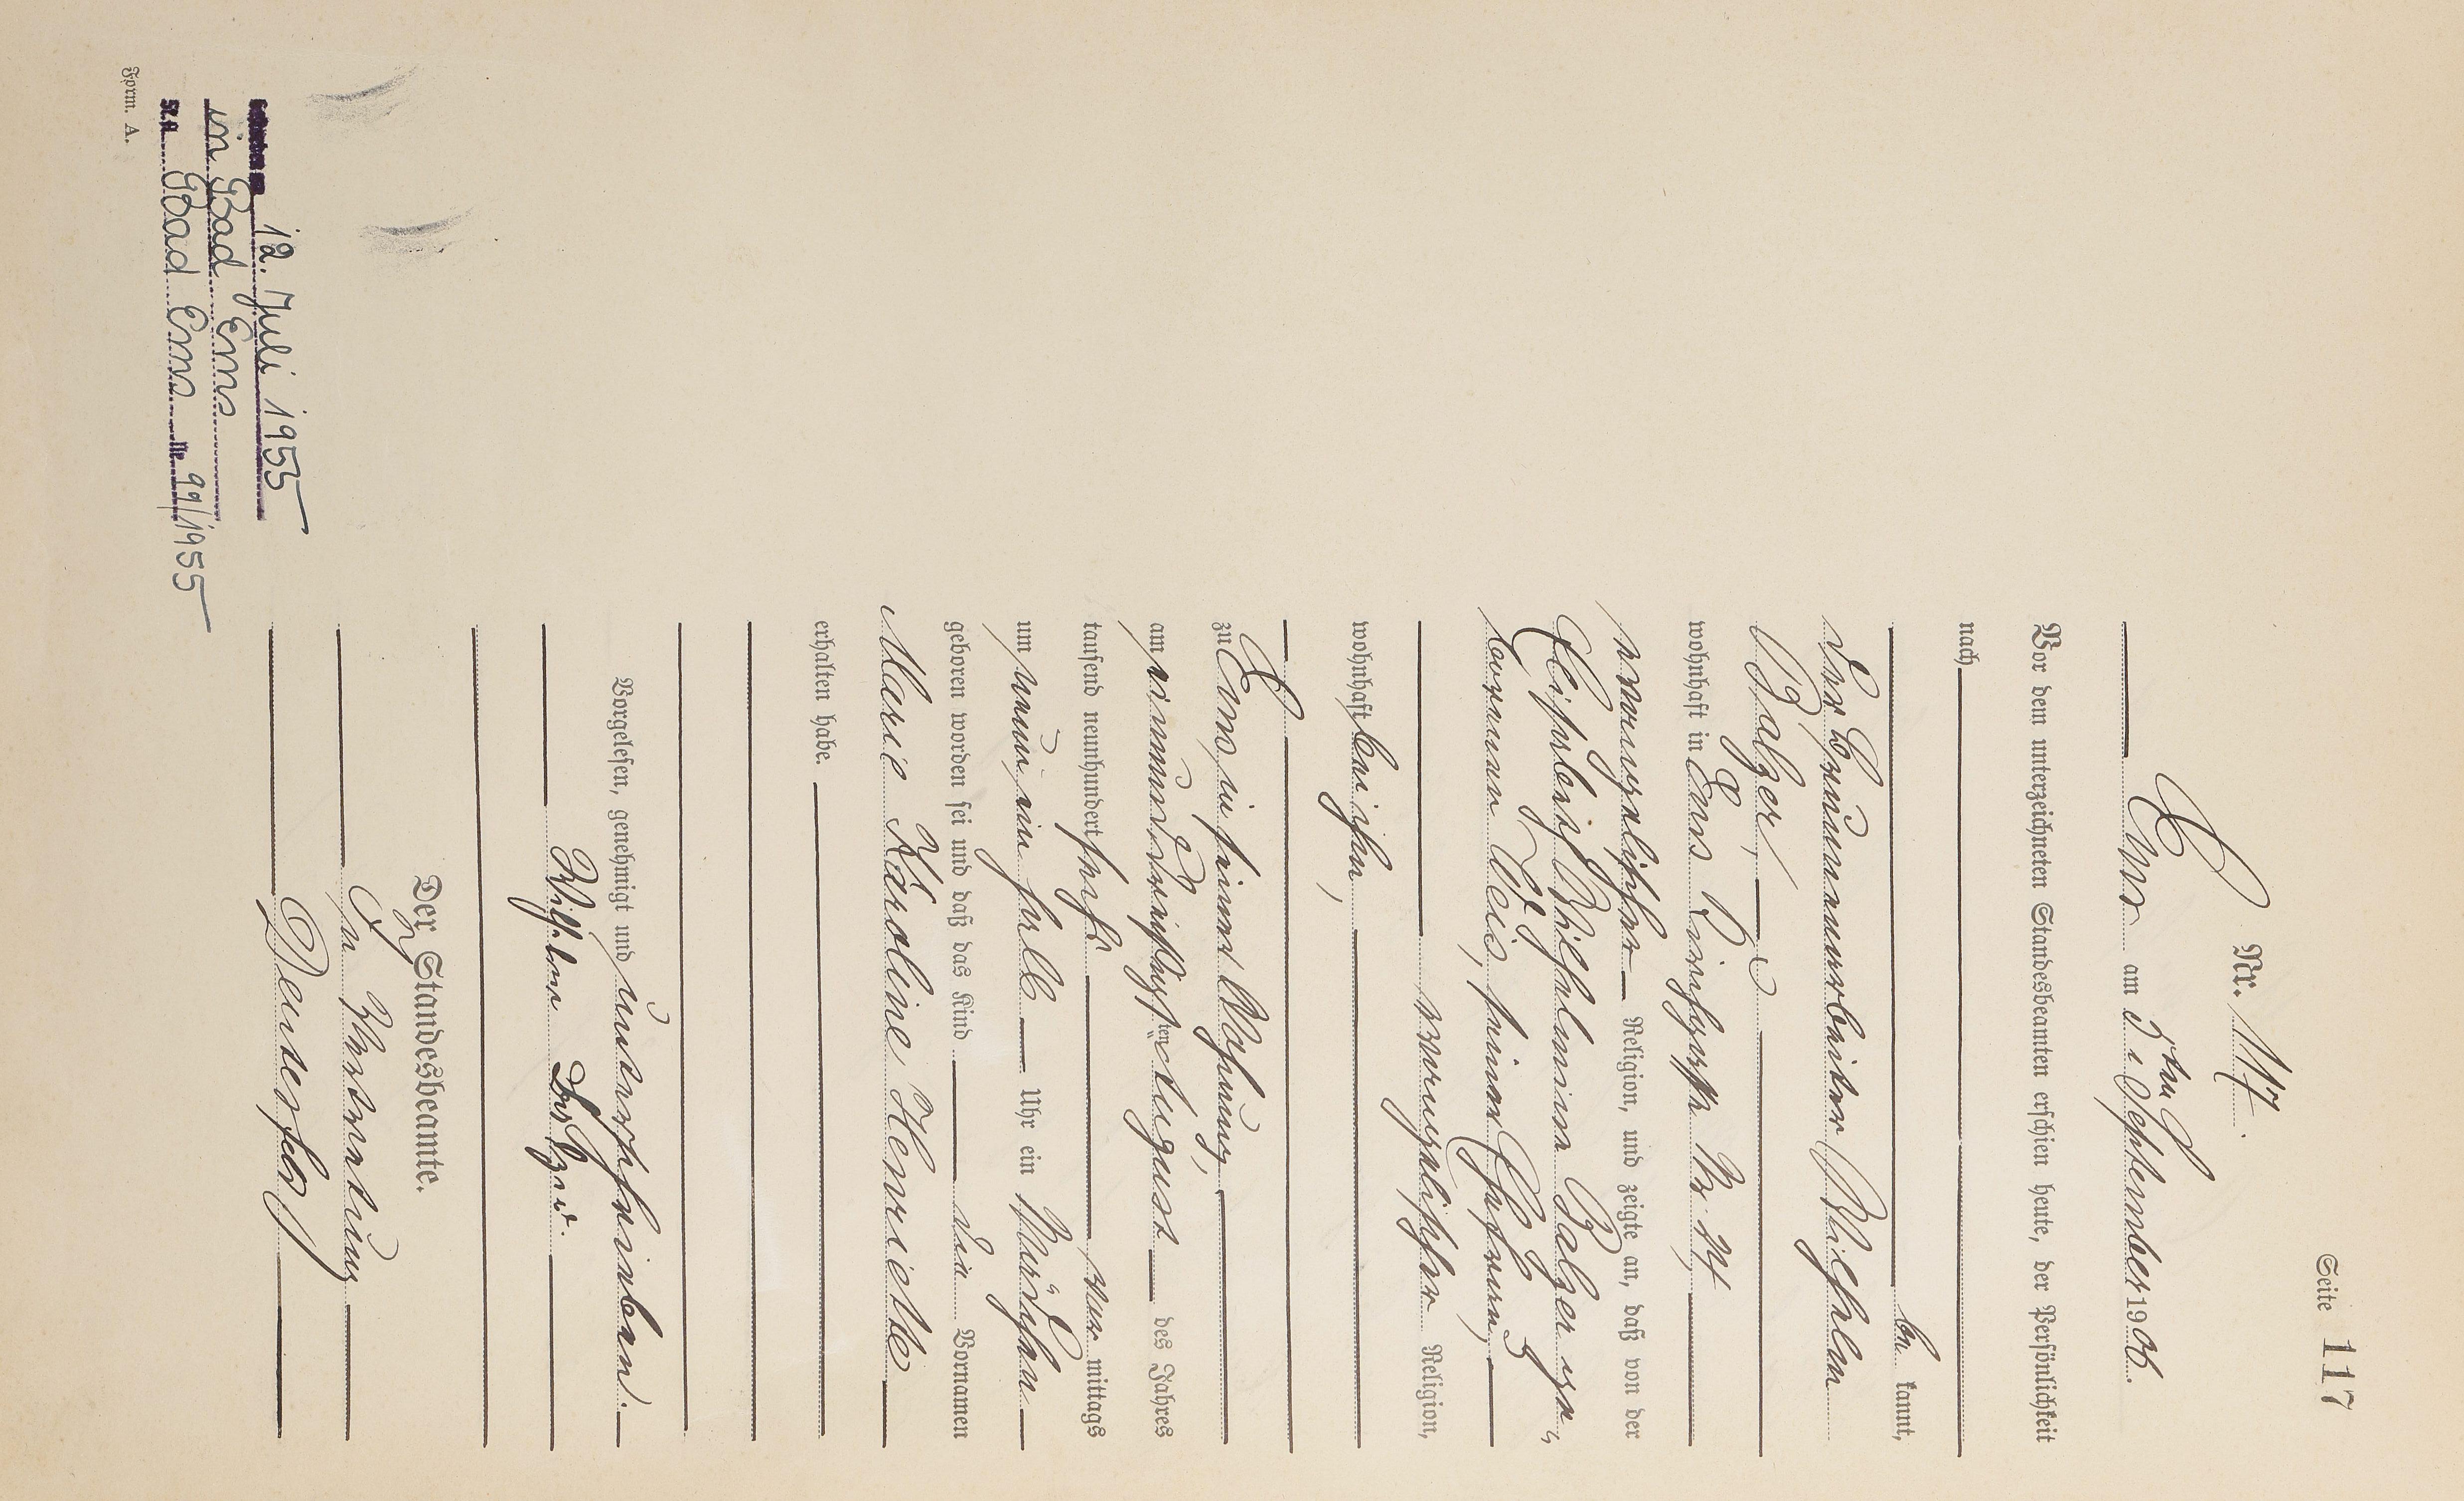 Seite 117
Nr. 117.
Ems am 5ten September 1906.
Vor dem unterzeichneten Standesbeamten erschien heute, der Persönlichkeit
nach
be kannt,
der Brunnenarbeiter Wilhelm
Balzer,
wohnhaft in Ems Kirchgasse Nr. 24
evangelischer Religion, und zeigte an, daß von der
Wilhelmine Balzer ge„
borenen Weis, seiner Ehefrau,
evangelischer Religion,
wohnhaft bei ihm,
zu Ems, in seiner Wohnung,
am einunddreißigsten August des Jahres
tausend neunhundert sechs vor mittags
um neun ein halb Uhr ein Mädchen
geboren worden sei und daß das Kind die Vornamen
Marie Karoline Henriette
erhalten habe.
Vorgelesen, genehmigt und unterschrieben.
Wilhelm Balzer.
Der Standesbeamte.
In Vertretung
12. Juli 1955
in Bad Ems
St.A. Bad Ems Nr. 99/1955
Form. A.